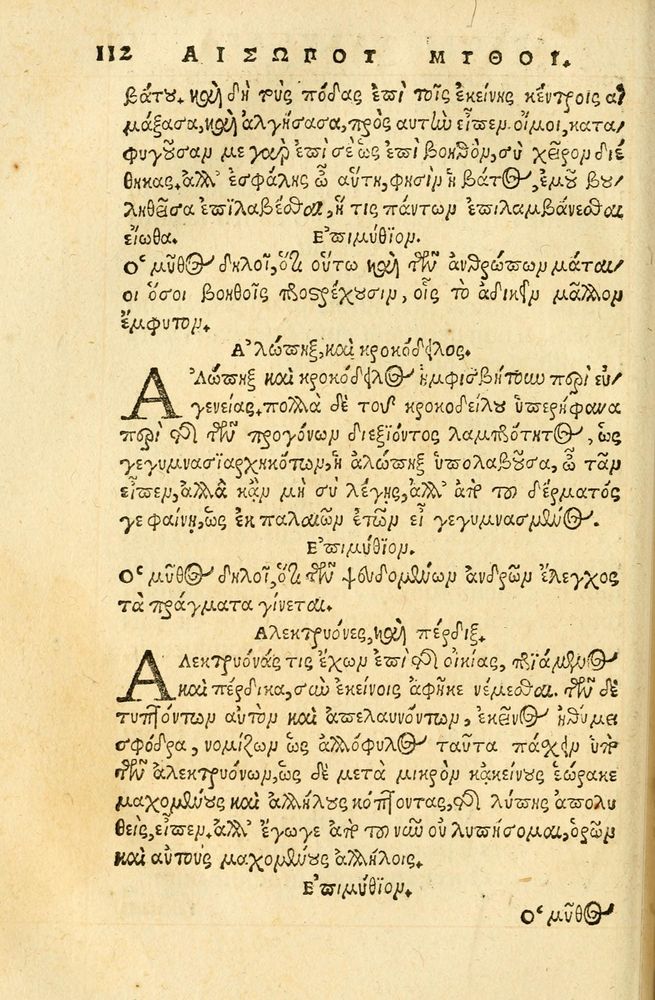 112 ΑΙΣΩΠΟΥ ΜΥΘΟΙ.
βάτου. καὶ δὴ τοὺς πόδας ἐπὶ τοῖς ἐκείνης κέντροις αἱ
μάξασα, καὶ ἀλγήσασα, πρὸς αὐτὴν εἶπεν. οἴμοι, κατα
φυγοῦσαν με γὰρ ἐπὶ σὲ ὡς ἐπὶ βοηθὸν, σὺ χεῖρον διέ
θηκας. ἀλλ' ἐσφάλης ὦ αὕτη, φησὶν ἡ βάτος, ἐμοῦ βου
ληθεῖσα ἐπιλαβέσθαι, ἥ τις πάντων ἐπιλαμβάνεσθαι
εἴωθα. Ἐπιμύθιον.
Ὁ μῦθος δηλοῖ, ὅτι οὕτω καὶ τῶν ἀνθρώπων μάται
οι ὅσοι βοηθοῖς προστρέχουσιν, οἷς τὸ ἀδικεῖν μᾶλλον
ἔμφυτον.
Ἀλώπηξ, καὶ κροκόδειλος.
Ἀλώπηξ καὶ κροκόδειλος ἠμφισβήτουν περὶ εὐ
γενείας. πολλὰ δὲ τοῦ κροκοδείλου ὑπερήφανα
περὶ τῆς τῶν προγόνων διεξϊόντος λαμπρότητος, ὡς
γεγυμνασϊαρχηκότων, ἡ ἀλώπηξ ὑπολαβοῦσα, ὦ τᾶν
εἶπεν, ἀλλὰ κἂν μὴ σὺ λέγῃς, ἀλλ' ἀπὸ τοῦ δέρματός
γε φαίνῃ, ὡς ἐκ παλαιῶν ἐτῶν εἶ γεγυμνασμένος.
Ἐπιμύθϊον.
Ὁ μῦθος δηλοῖ, ὅτι τῶν ψευδομένων ἀνδρῶν ἔλεγχος
τὰ πράγματα γίνεται.
Ἀλεκτρυόνες, καὶ πέρδιξ.
Ἀλεκτρυόνάς τις ἔχων ἐπὶ τῆς οἰκίας, πριάμενος
καὶ πέρδικα, σὺν ἐκείνοις ἀφῆκε νέμεσθαι. τῶν δὲ
τυπτόντων αὐτὸν καὶ ἀπελαυνόντων, ἐκεῖνος ἠθύμει
σφόδρα, νομίζων ὡς ἀλλόφυλος ταῦτα πάσχειν ὑπὸ
τῶν ἀλεκτρυόνων, ὡς δὲ μετὰ μικρὸν κἀκείνους ἑώρακε
μαχομένους καὶ ἀλλήλους κόπτοντας, τῆς λύπης ἀπολυ
θεὶς, εἶπεν. ἀλλ' ἔγωγε ἀπὸ τοῦ νῦν οὐ λυπήσομαι, ὁρῶν
καὶ αὐτοὺς μαχομένους ἀλλήλοις.
Ἐπιμύθϊον.
Ὁ μῦθος